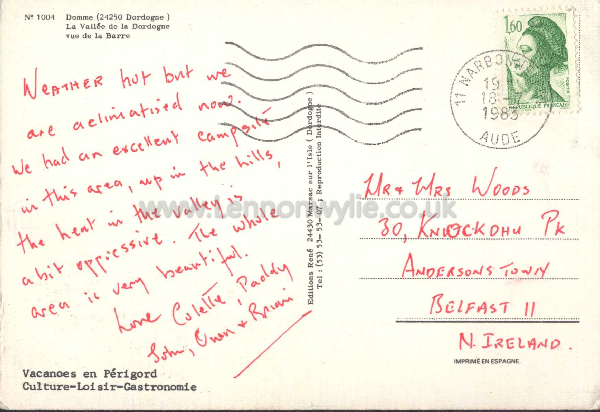 Nº 1004 Domme (24250 Dordogne)
La Vallée de la Dordogne
vue de la Barre
WEATHER hut but we
are aclimatised now.
We had an excellent campsite
in this area, up in the hills,
the heat in the valley is
a bit oppressive. The whole
area is very beautiful.
Love Colette, Paddy
John, Owen & Brian
Vacances en Périgord
Culture-Loisir-Gastronomie
Editions René 24430 Marsac sur l'Isle (Dordogne)
Tel: (53) 53-53-07 / Reproduction Interdite
1,60
REPUBLIQUE FRANÇAISE
11 NARBONNE
19
18
1983
AUDE
MR & MRS WOODS
30, KNOCKDHU PK
ANDERSONSTOWN
BELFAST 11
N. IRELAND.
IMPRIMÉ EN ESPAGNE.
www.Lennonwylie.co.uk